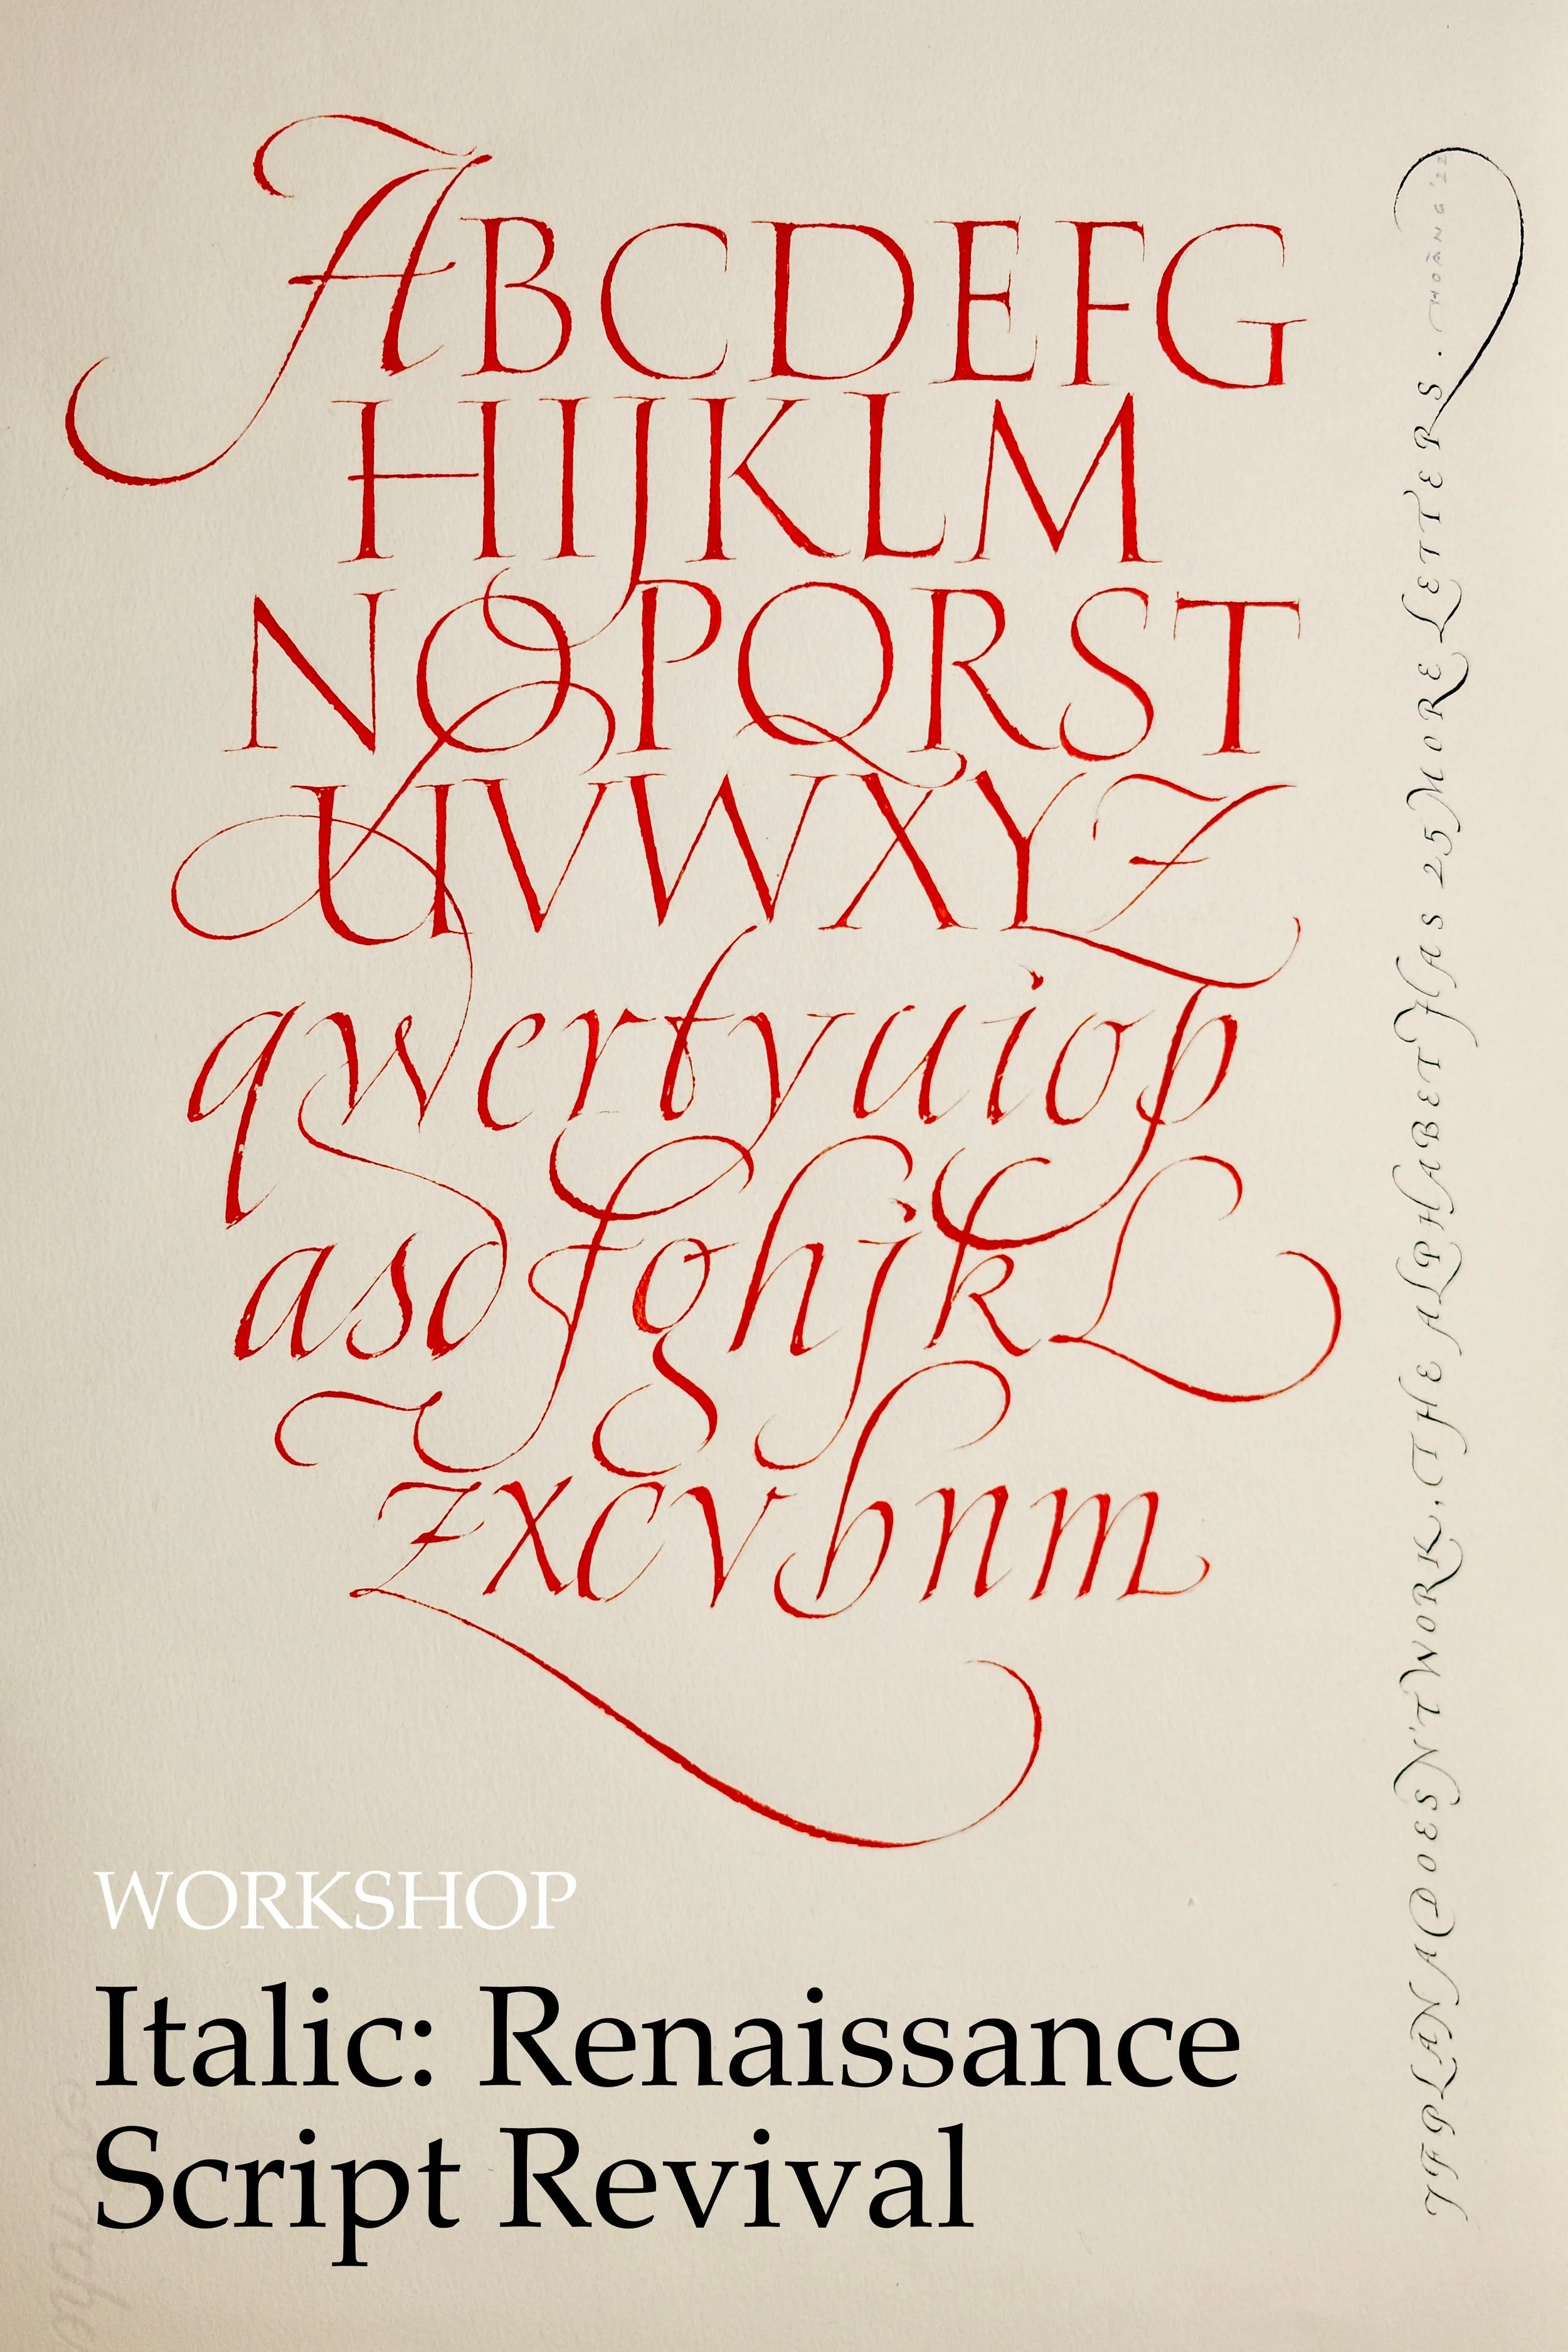 ABCDEFG
HIJKLM
NOPQRST
UVWXYZ
qwertyuiop
asdfghjkl
zxcvbnm
IF PLAN A DOESN'T WORK, THE ALPHABET HAS 25 MORE LETTERS. HOÀNG '22
WORKSHOP
Italic: Renaissance
Script Revival